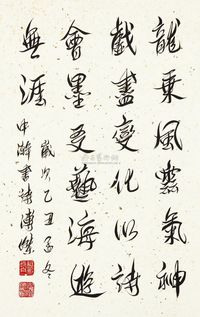 龍乘風雲氣神
戲盡變化以詩
會墨交藝海遊
無涯
歲次乙丑孟冬
書詩溥傑